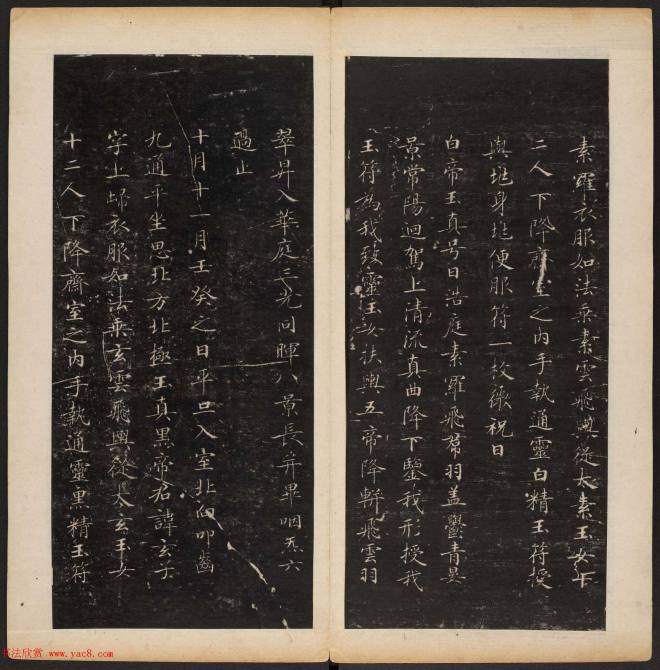 素羅衣服如法乘素雲飛輿從太素玉女十
二人下降齋室之內手執通靈白精玉符授
與兆身兆便服符一枚微祝曰
白帝玉真号曰浩庭素羅飛帬羽盖鬱青晃
景常陽迴駕上清流真曲降下鑒我形授我
玉符為我致靈玉女扶輿五帝降軿飛雲羽
翠昇入華庭三光同暉八景長并畢咽炁六
過止
十月十一月壬癸之日平旦入室北向叩齒
九通平坐思北方北極玉真黑帝君諱玄子
字上歸衣服如法乘玄雲飛輿從太玄玉女
十二人下降齋室之內手執通靈黑精玉符
书法欣赏 www.yac8.com